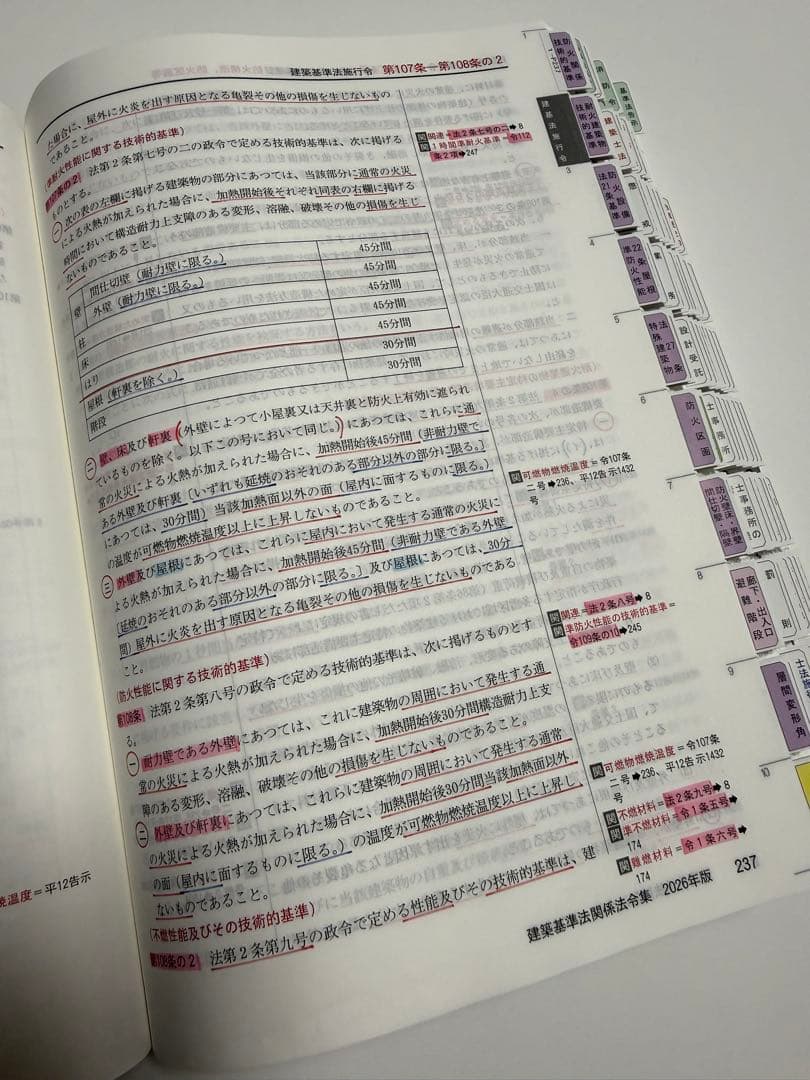 建築基準法施行令 第107条―第108条の2
た場合に、屋外に火炎を出す原因となる亀裂その他の損傷を生じないもの
であること。
(準耐火性能に関する技術的基準)
第107条の2 法第2条第七号の二の政令で定める技術的基準は、次に掲げる
ものとする。
一 次の表の左欄に掲げる建築物の部分にあつては、当該部分に通常の火災
による火熱が加えられた場合に、加熱開始後それぞれ同表の右欄に掲げる
時間において構造耐力上支障のある変形、溶融、破壊その他の損傷を生じ
ないものであること。
壁 間仕切壁(耐力壁に限る。) 45分間
外壁(耐力壁に限る。) 45分間
柱 45分間
床 45分間
はり 45分間
屋根(軒裏を除く。) 30分間
階段 30分間
二 壁、床及び軒裏(外壁によつて小屋裏又は天井裏と防火上有効に遮られ
ているものを除く。以下この号において同じ。)にあつては、これらに通
常の火災による火熱が加えられた場合に、加熱開始後45分間(非耐力壁で
ある外壁及び軒裏(いずれも延焼のおそれのある部分以外の部分に限る。)
にあつては、30分間)当該加熱面以外の面(屋内に面するものに限る。)
の温度が可燃物燃焼温度以上に上昇しないものであること。
三 外壁及び屋根にあつては、これらに屋内において発生する通常の火災に
よる火熱が加えられた場合に、加熱開始後45分間(非耐力壁である外壁
(延焼のおそれのある部分以外の部分に限る。)及び屋根にあつては、30分
間)屋外に火炎を出す原因となる亀裂その他の損傷を生じないものである
こと。
(防火性能に関する技術的基準)
第108条 法第2条第八号の政令で定める技術的基準は、次に掲げるものとす
る。
一 耐力壁である外壁にあつては、これに建築物の周囲において発生する通
常の火災による火熱が加えられた場合に、加熱開始後30分間構造耐力上支
障のある変形、溶融、破壊その他の損傷を生じないものであること。
二 外壁及び軒裏にあつては、これらに建築物の周囲において発生する通常
の火災による火熱が加えられた場合に、加熱開始後30分間当該加熱面以外
の面(屋内に面するものに限る。)の温度が可燃物燃焼温度以上に上昇し
ないものであること。
(不燃性能及びその技術的基準)
第108条の2 法第2条第九号の政令で定める性能及びその技術的基準は、建
関 関連=法2条七号の二➡8
関 1時間準耐火基準=令112
条2項➡247
関 可燃物燃焼温度=令107条
二号➡236、平12告示1432
号
関 関連=法2条八号➡8
関 準防火性能の技術的基準=
令109条の10➡245
関 可燃物燃焼温度=令107条
二号➡236、平12告示1432
号
関 不燃材料=法2条九号➡8
関 準不燃材料=令1条五号➡
174
関 難燃材料=令1条六号➡
174
建築基準法関係法令集 2026年版 237
焼温度=平12告示
1
防火関係
技術的基準
P.237
消防令
基準法告示
建基法施行令
耐火建築物
技術的基準
建築士法
3
防火設備
法21条基準
4
準防火性能
22条屋根
5
特殊建築物
法27条
設計受託
6
防火区画
士事務所
7
防火壁・床・界壁
間仕切壁・隔壁
士事務所の
8
廊下・出入口
避難・階段
罰則
9
層間変形角
10